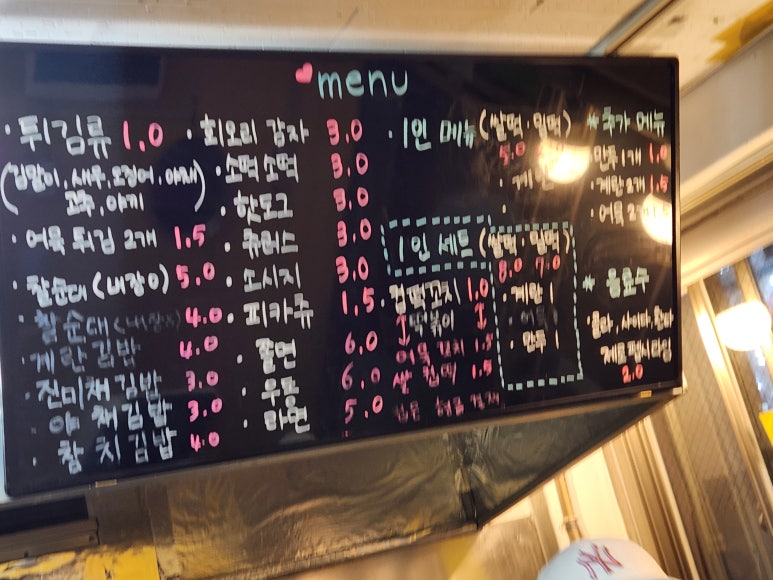 menu
· 튀김류 1.0
(김말이, 새우, 오징어, 야채
고추, 야끼)
· 어묵 튀김 2개 1.5
· 찰순대 (내장이) 5.0
찰순대 4.0
· 계란 김밥 4.0
· 진미채 김밥 3.0
· 야채김밥 3.0
· 참치김밥 4.0
· 회오리 감자 3.0
· 소떡소떡 3.0
· 핫도그 3.0
· 츄러스 3.0
· 소시지 3.0
· 피카츄 1.5
· 쫄면 6.0
· 우동 6.0
· 라면 5.0
· 1인 메뉴 (쌀떡·밀떡)
5.0
· 계란
1인 세트 (쌀떡·밀떡)
8.0 7.0
· 계란 1
· 만두 1
· 컵떡꼬치 1.0
떡볶이
어묵 꼬치 1.5
* 추가 메뉴
· 만두 1개 1.0
· 계란 2개 1.5
· 어묵 2개
* 음료수
· 콜라, 사이다, 환타
제로펩시라임
2.0
NY